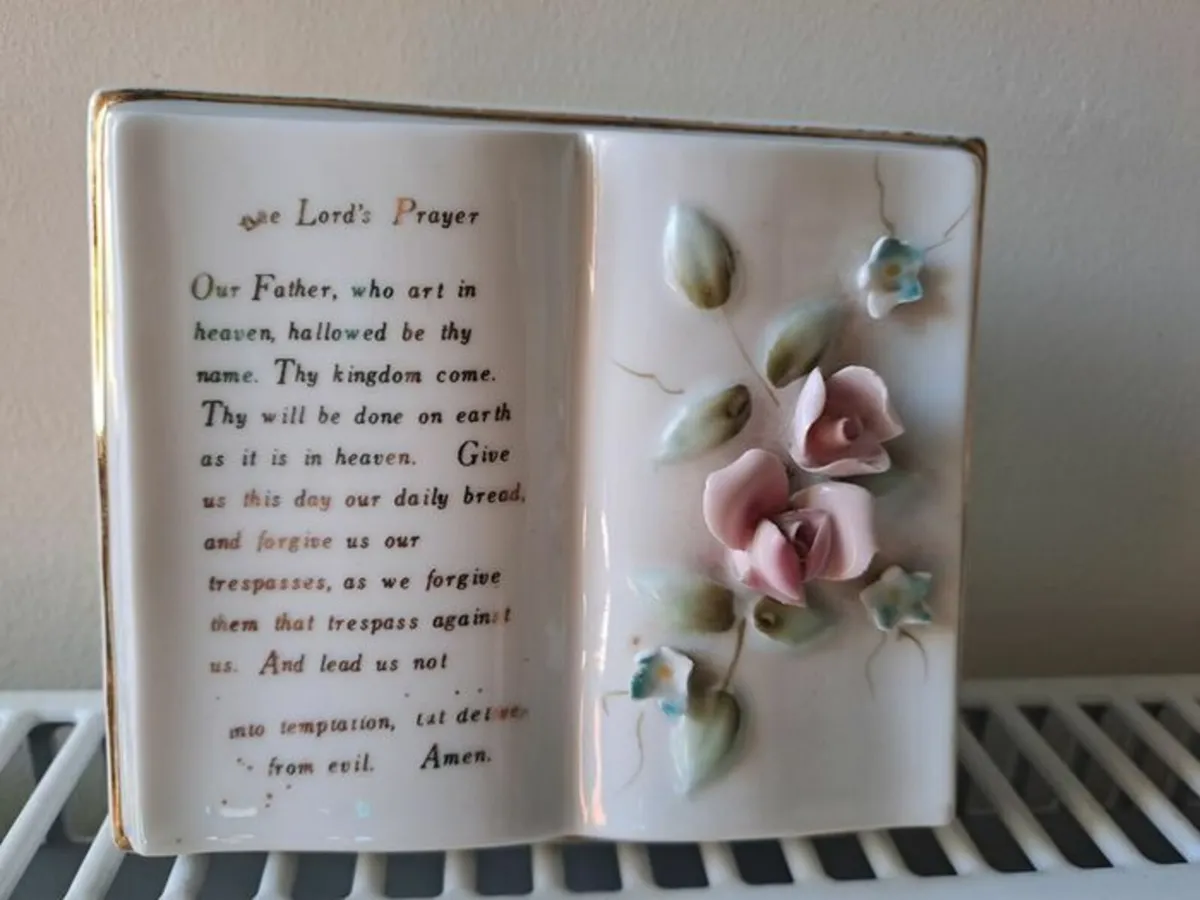 The Lord's Prayer
Our Father, who art in
heaven, hallowed be thy
name. Thy kingdom come.
Thy will be done on earth
as it is in heaven. Give
us this day our daily bread,
and forgive us our
trespasses, as we forgive
them that trespass against
us. And lead us not
into temptation, but deliver
from evil. Amen.